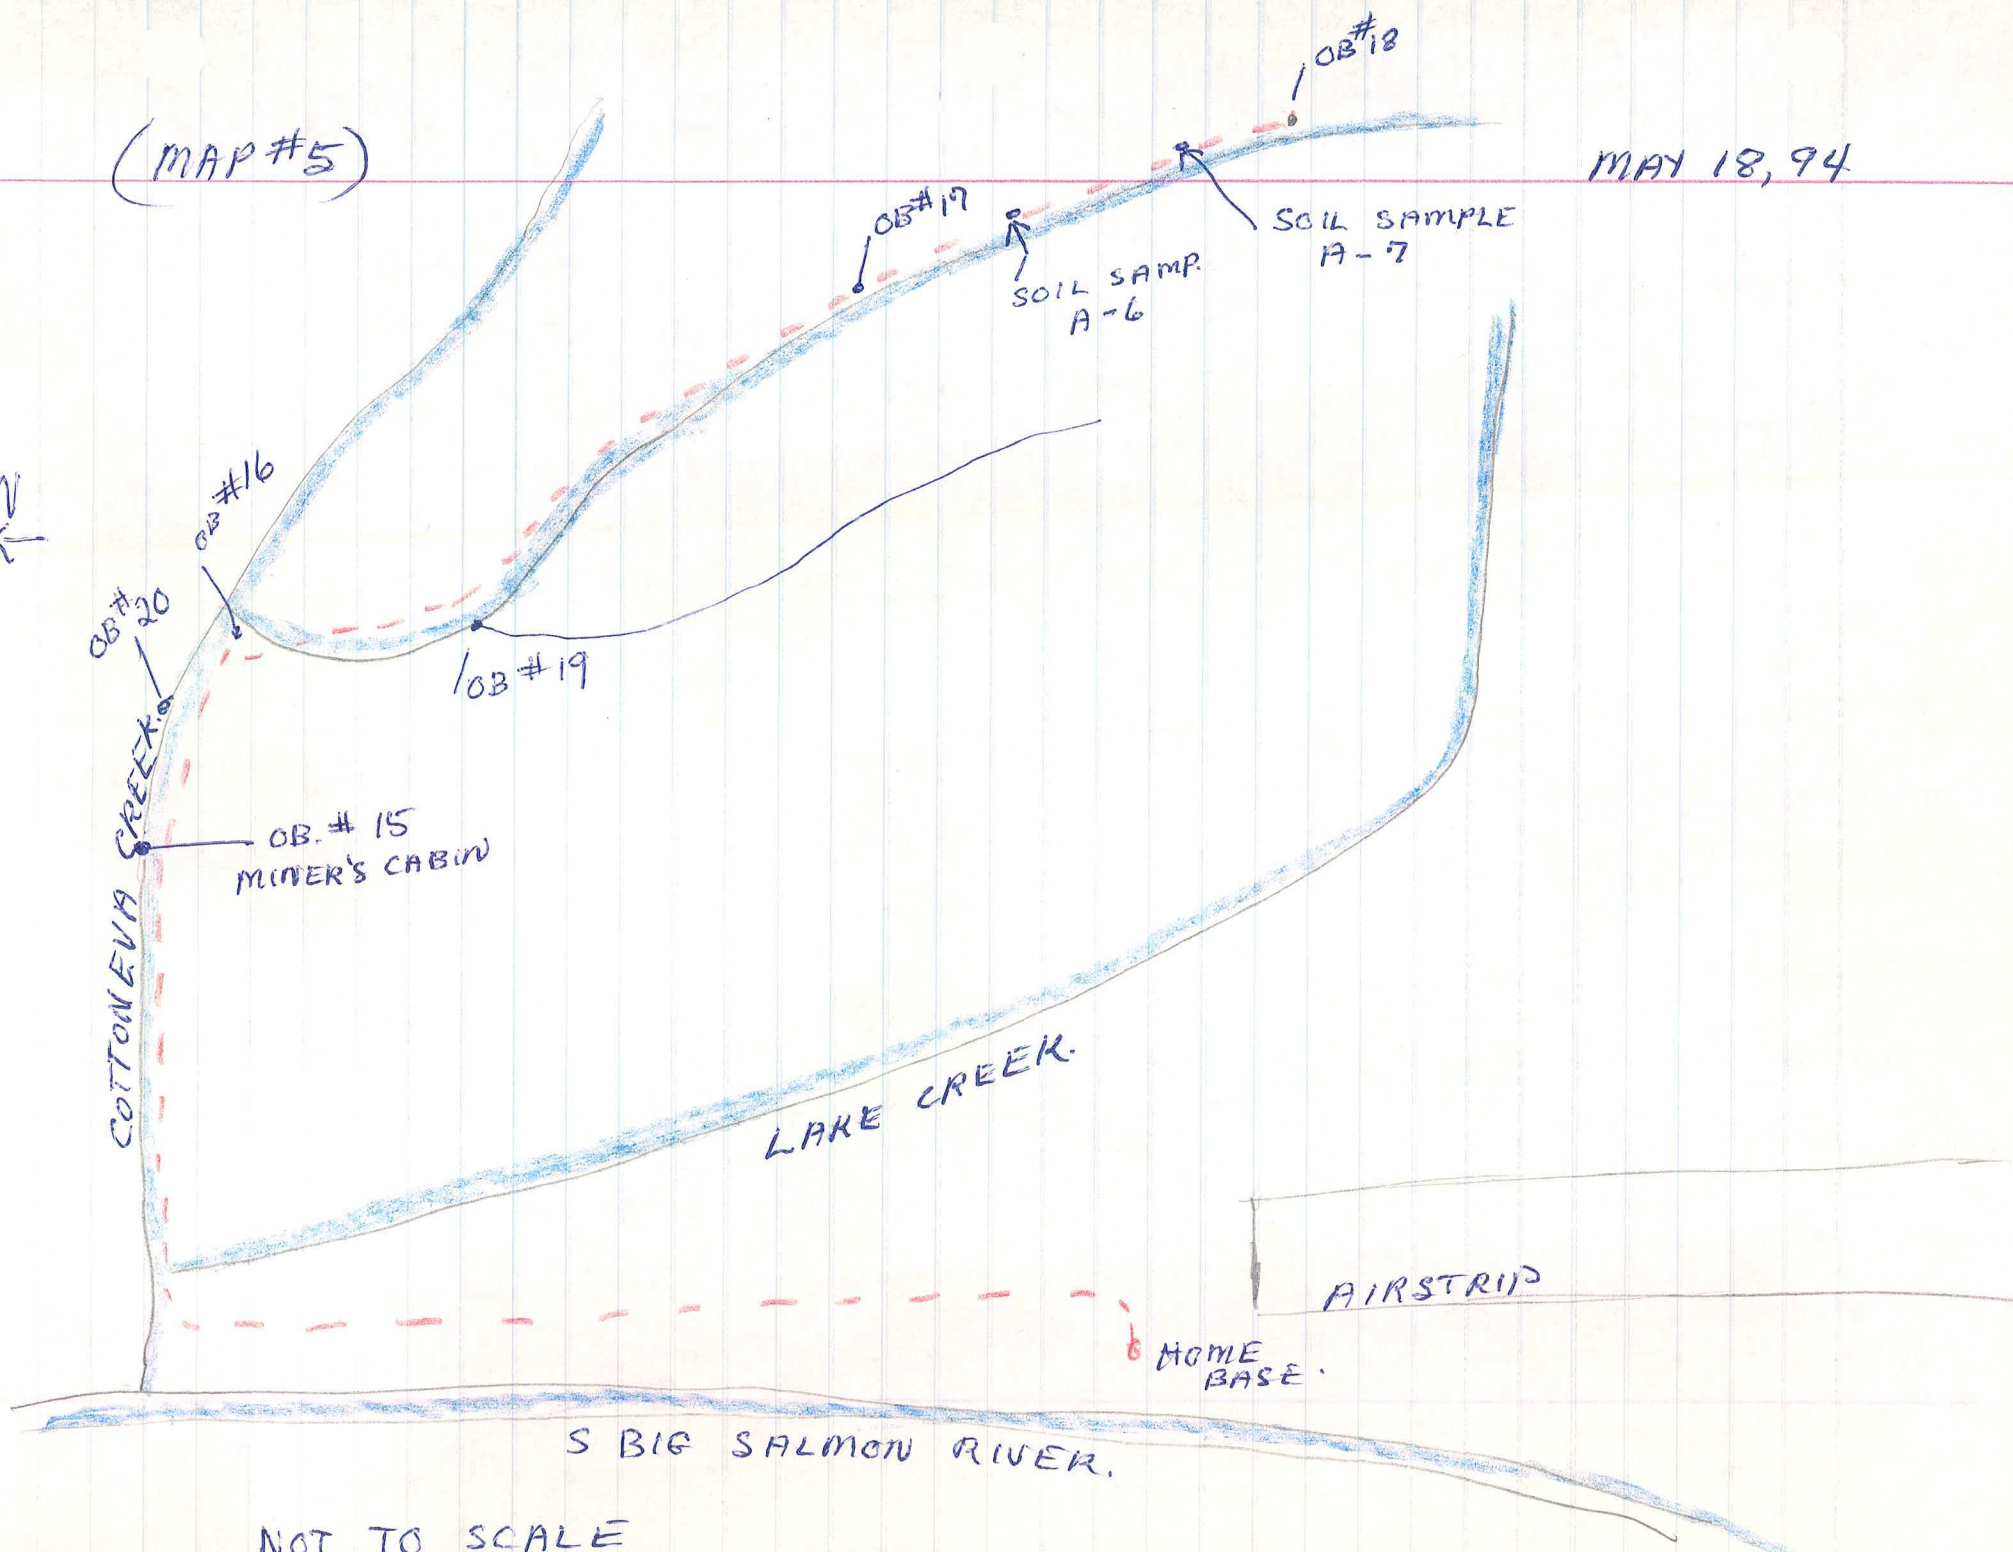 (MAP #5)
MAY 18, 94
OB #18
OB #17
SOIL SAMPLE
A-7
SOIL SAMP.
A-6
N
OB #16
OB #
20
OB #19
COTTONEVA CREEK.
OB. # 15
MINER'S CABIN
LAKE CREEK.
AIRSTRIP
HOME
BASE.
S BIG SALMON RIVER.
NOT TO SCALE